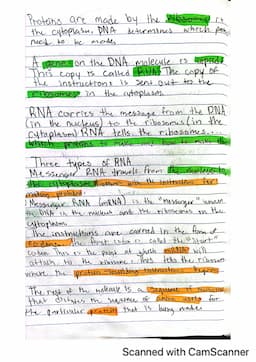 Proteins are made by the ribosomes in
the cytoplasm. DNA determines which
need to be made.
A gene on the DNA molecule is copied.
This copy is called RNA. The copy of
the instructions is sent out to the
ribosomes in the cytoplasm.
RNA carries the message from the DNA
(in the nucleus) to the ribosomes (in the
cytoplasm) RNA tells the ribosomes...
which proteins to make
Three types of RNA
Messenger RNA travels from the
the cytoplasm with the instructions for
making protein
Messenger RNA (mRNA) is the "messenger"
DNA in the nucleus and the ribosomes in the
cytoplasm
The instructions are carried in the form of
the first codon is called the "start"
codon This is the point at which mRNA will
attach to the ribosome. This tells the ribosome
where the begins
The rest of the molecule is a sequence of
that dictates the sequence of amino acids for
the particular protein that is being made
Scanned with CamScanner